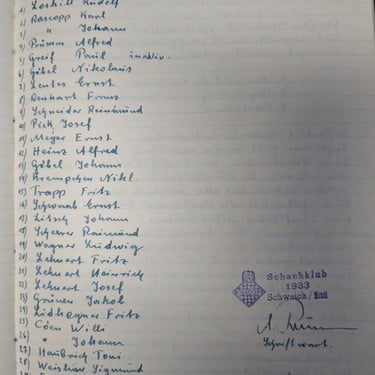 1) Loskill Rudolf
2) Roscopp Karl
3) " Johann
4) Prümm Alfred
5) Greif Paul inaktiv.
6) Göbel Nikolaus
7) Lentes Ernst
8) Denhart Franz
9) Schneider Reinmund
10) Pick Josef
11) Meyer Ernst
12) Heinz Alfred
13) Göbel Johann
14) Krempchen Nikl.
15) Trapp Fritz
16) Schwaab Ernst
17) Litsch Johann
18) Scherer Raimund
19) Wagner Ludwig
20) Lehnert Fritz
21) Lehnert Heinrich
22) Lehnert Josef
23) Grünen Jakob
24) Lidhegner Fritz
25) Cöen Willi
26) " Johann
27) Haubrich Toni
28) Weishaw Sigmund
Schachklub
1933
Schweich / Mosel
Schriftwart.